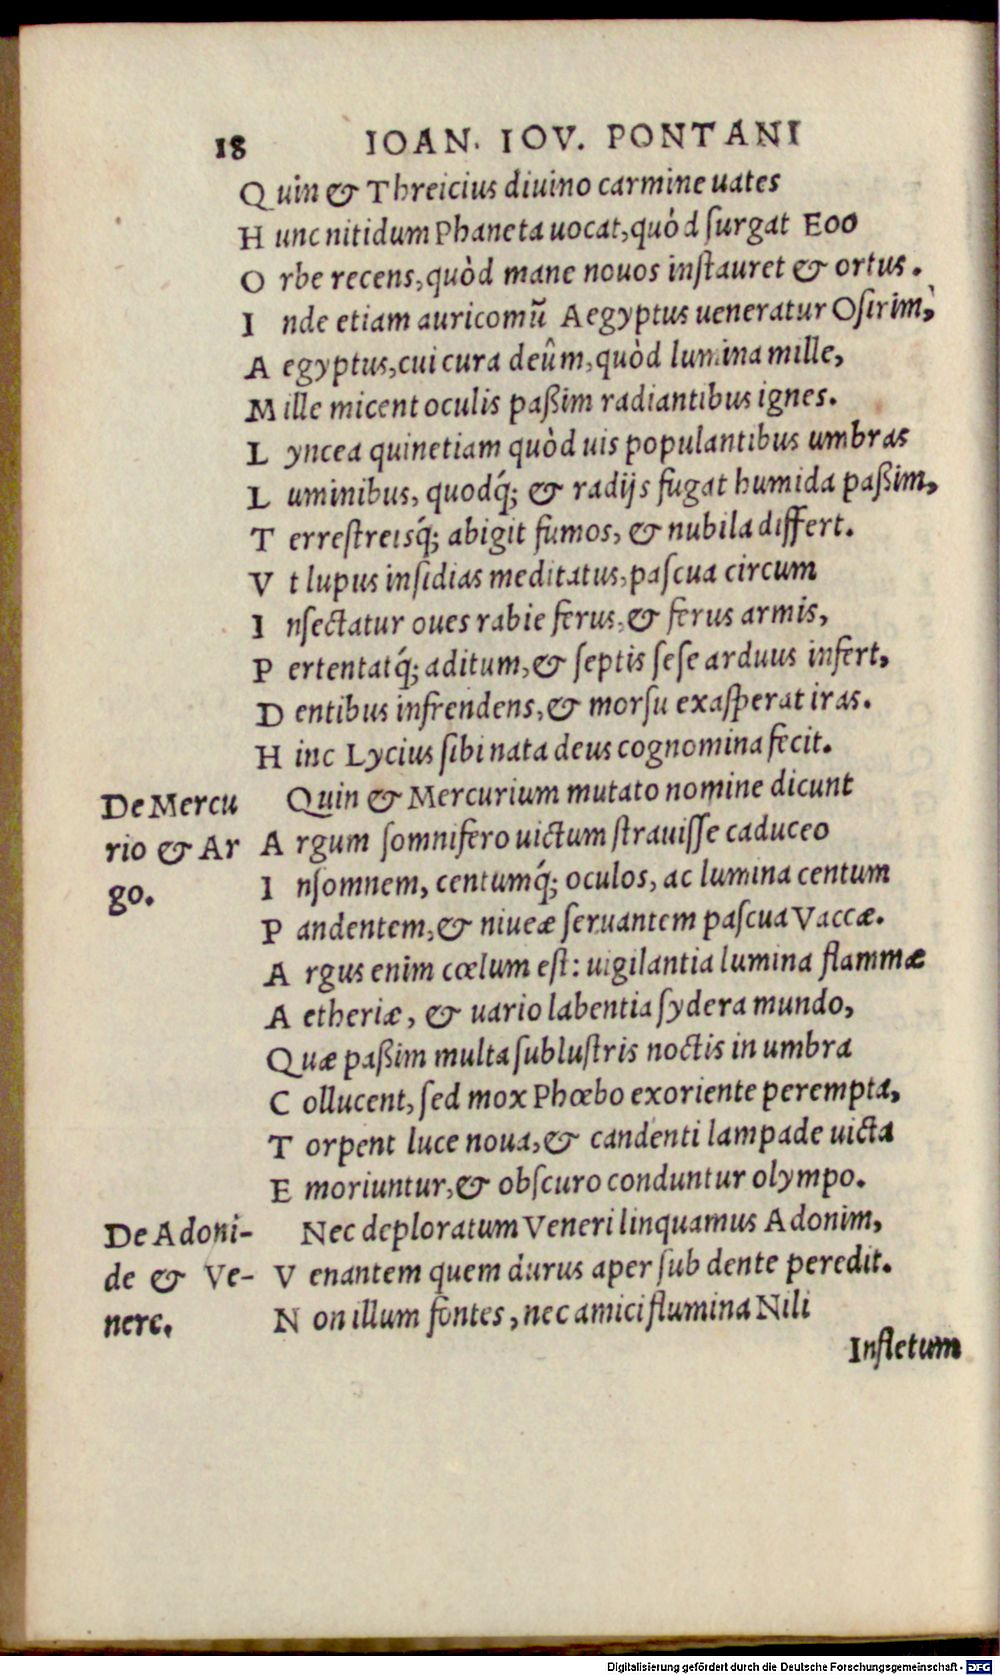 18 IOAN. IOV. PONTANI
Quin & Threicius diuino carmine uates
Hunc nitidum Phaneta uocat, quòd ſurgat Eoo
Orbe recens, quòd mane nouos inſtauret & ortus.
Inde etiam auricomũ Aegyptus ueneratur Oſirim,
Aegyptus, cui cura deûm, quòd lumina mille,
Mille micent oculis paßim radiantibus ignes.
Lyncea quinetiam quòd uis populantibus umbras
Luminibus, quodq́; & radijs fugat humida paßim,
Terreſtreisq́; abigit fumos, & nubila differt.
Vt lupus inſidias meditatus, paſcua circum
Inſectatur oues rabie ferus, & ferus armis,
Pertentatq́; aditum, & ſeptis ſeſe arduus infert,
Dentibus infrendens, & morſu exaſperat iras.
Hinc Lycius ſibi nata deus cognomina fecit.
De Mercu
rio & Ar
go.
Quin & Mercurium mutato nomine dicunt
Argum ſomnifero uictum ſtrauiſſe caduceo
Inſomnem, centumq́; oculos, ac lumina centum
Pandentem, & niueæ ſeruantem paſcua Vaccæ.
Argus enim cœlum eſt: uigilantia lumina flammæ
Aetheriæ, & uario labentia ſydera mundo,
Quæ paßim multa ſubluſtris noctis in umbra
Collucent, ſed mox Phœbo exoriente perempta,
Torpent luce noua, & candenti lampade uicta
Emoriuntur, & obſcuro conduntur olympo.
De Adoni-
de & Ve-
nere.
Nec deploratum Veneri linquamus Adonim,
Venantem quem durus aper ſub dente peredit.
Non illum fontes, nec amici flumina Nili
Infletum
Digitalisierung gefördert durch die Deutsche Forschungsgemeinschaft - DFG